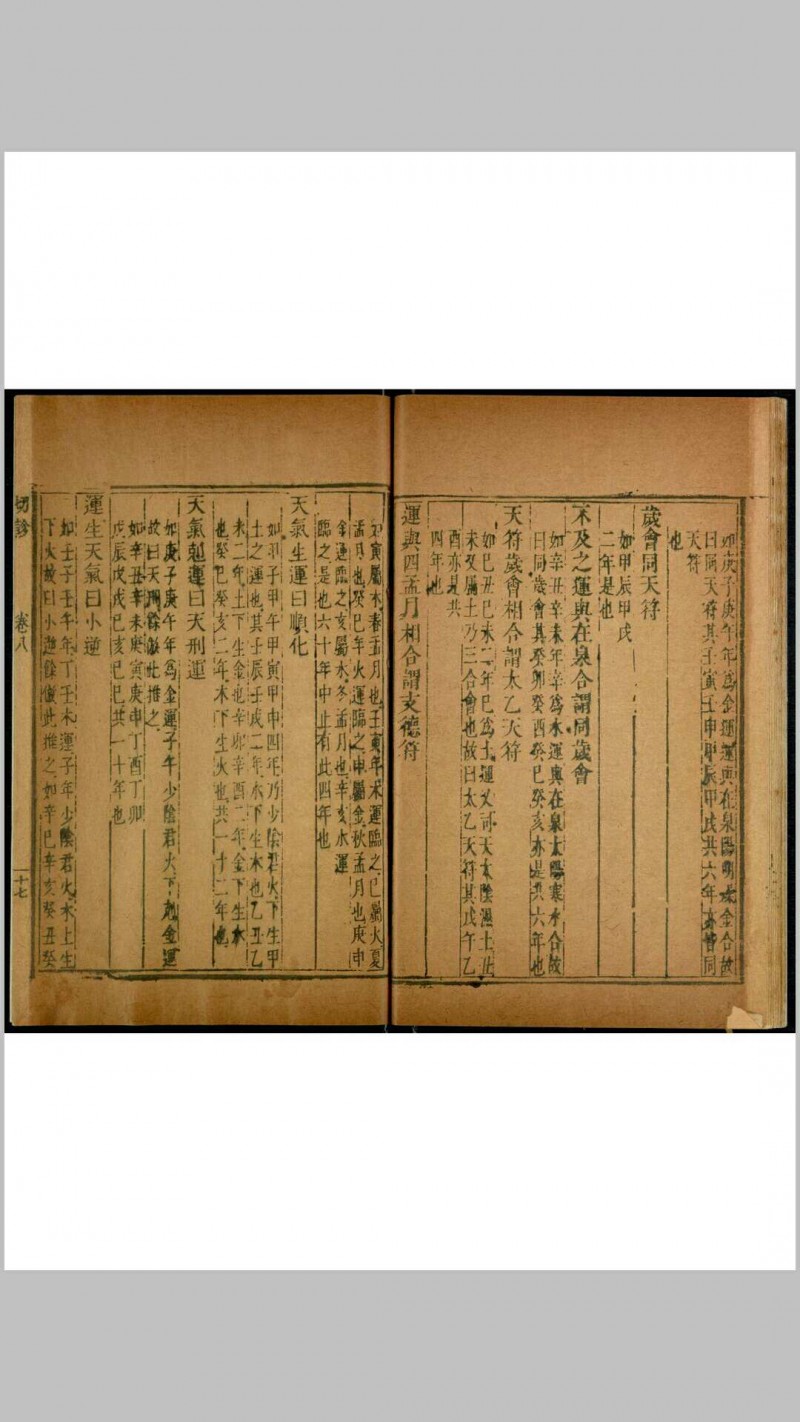 如庚子庚午年爲金運運與在泉陽明燥金合故
曰同天符其壬寅壬申甲辰甲戌共六年亦皆同
天符
也
歲會同天符
如甲辰甲戌
二年是也
不及之運與在泉合謂同歲會
如辛丑辛未年辛爲水運與在泉太陽寒水合故
曰同歲會其癸卯癸酉癸巳癸亥亦是共六年也
天符歲會相合謂太乙天符
如巳丑巳未二年巳爲土運又司天太陰濕土丑
未又屬土乃三合會也故曰太乙天符其戊午乙
酉亦是共
四年也
運與四孟月相合謂支德符
如寅屬木春孟月也壬寅年木運臨之巳屬火夏
孟月也癸巳年火運臨之申屬金秋孟月也庚申
金運臨之亥屬水冬孟月也辛亥水運
臨之是也六十年中止有此四年也
天氣生運曰順化
如甲子甲午甲寅甲申四年乃少陰君火下生甲
土之運也其壬辰壬戌二年水下生木也乙丑乙
未二年土下生金也辛卯辛酉二年金下生水
也癸巳癸亥二年木下生火也共一十二年也
天氣剋運曰天刑運
如庚子庚午年爲金運子午少陰君火下剋金運
故曰天刑餘倣此推之
如辛丑辛未庚寅庚申丁酉丁卯
戊辰戊戌巳亥巳巳共一十年也
運生天氣曰小逆
如壬子壬午年丁壬木運子年少陰君火木上生
下火故曰小逆餘倣此推之如辛巳辛亥癸丑癸
切診
卷八
十七